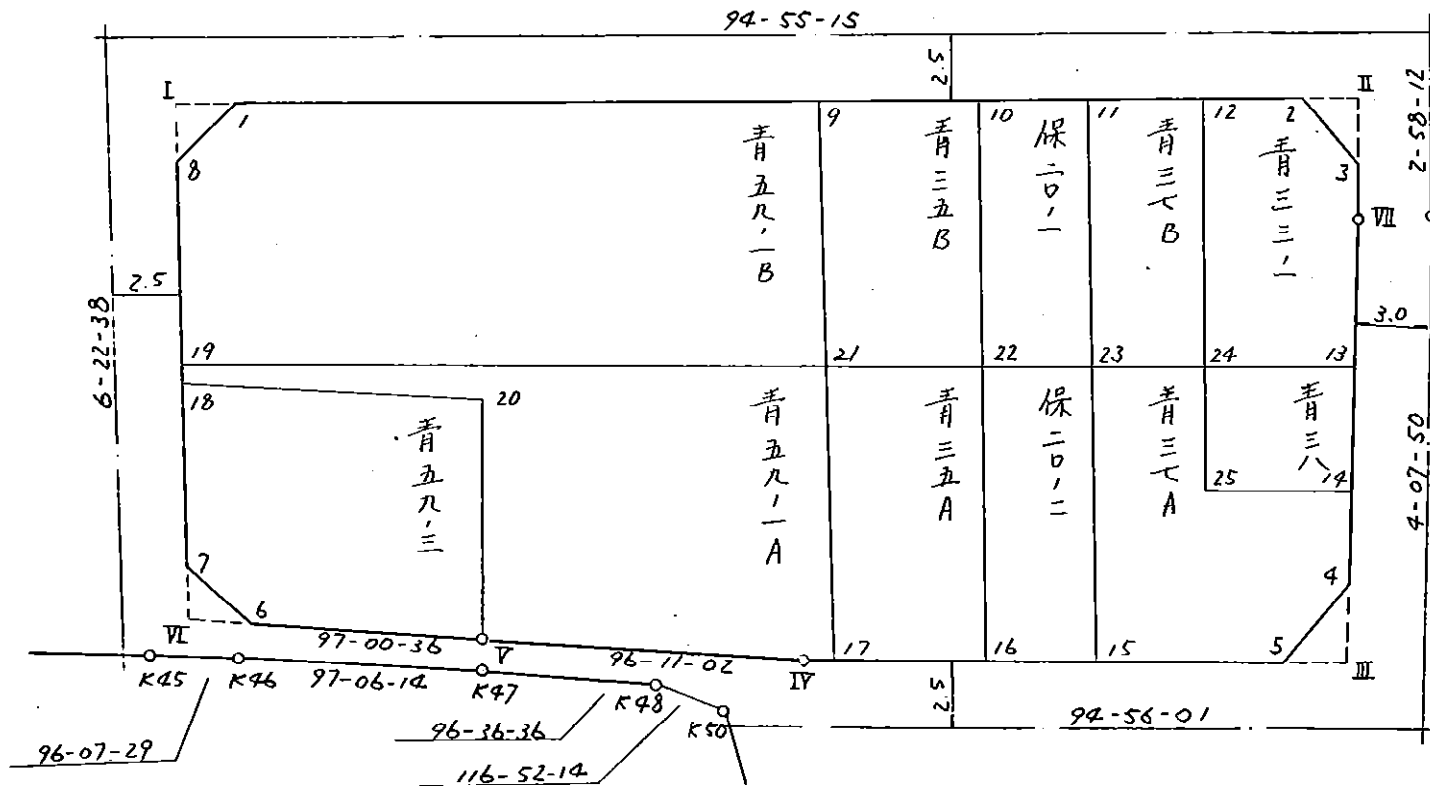 94-55-15
2.5
I
II
1
9
10
11
12
2
3
8
VII
2-58-12
青五九ノ一B
青三五B
保二〇ノ一
青三七B
青三三ノ一
2.5
3.0
6-22-38
19
21
22
23
24
13
18
20
青五九ノ三
青五九ノ一A
青三五A
保二〇ノ二
青三七A
青三八
25
14
4-07-50
7
4
6
5
VI
97-00-36
V
96-11-02
IV
17
16
15
III
K45
K46
97-06-14
K47
K48
K50
2.5
94-56-01
96-07-29
96-36-36
116-52-14